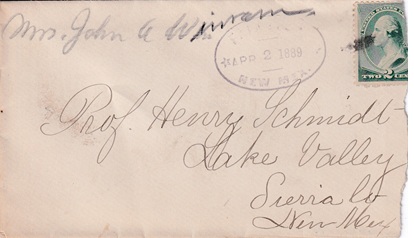 Mrs. John A
APR 2 1889
NEW MEX.
TWO CENTS
Prof. Henry Schmidt
Lake Valley
Sierra Co
New Mex